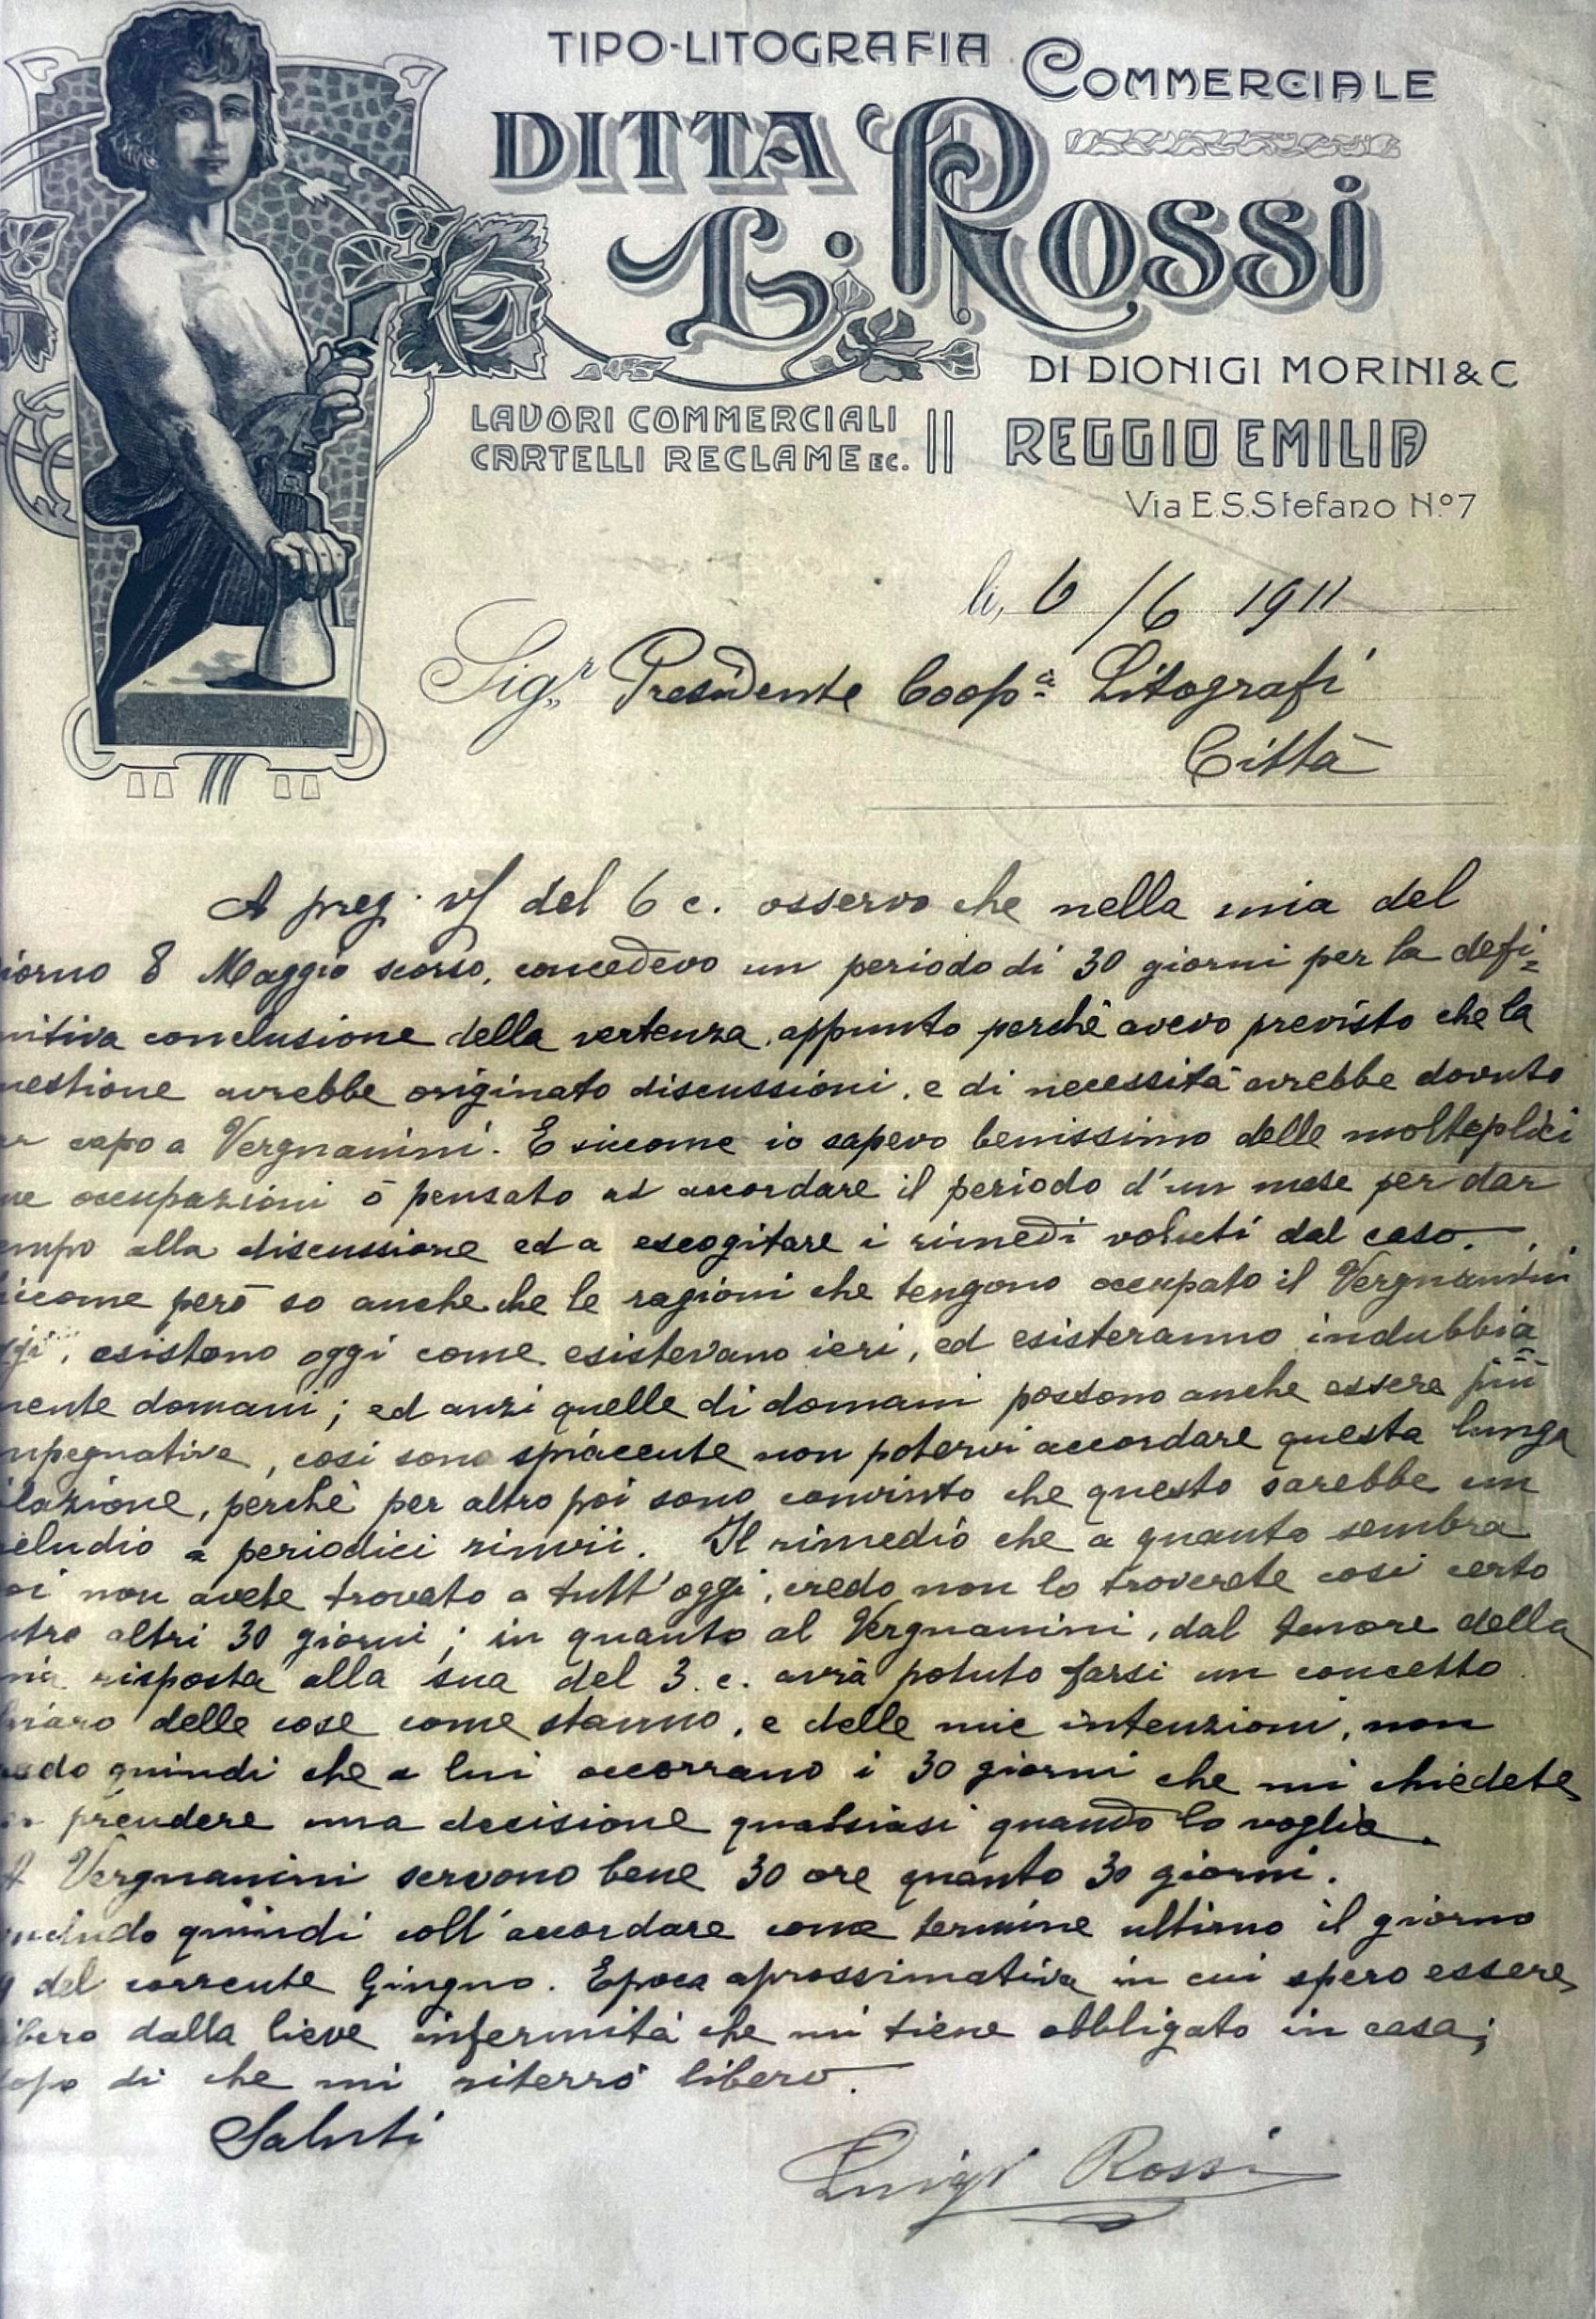 TIPO-LITOGRAFIA COMMERCIALE
DITTA L. ROSSI
DI DIONIGI MORINI & C
LAVORI COMMERCIALI
CARTELLI RECLAME EC.
REGGIO EMILIA
Via E.S. Stefano N.º 7
li, 6/6 1911
Sigr. Presidente Coopª Litografi
Città
A preg. v/ del 6 c. osservo che nella mia del
iorno 8 Maggio scorso, concedevo un periodo di 30 giorni per la defi=
nitiva conclusione della vertenza, appunto perchè avevo previsto che la
uestione avrebbe originato discussioni, e di necessità avrebbe dovuto
ar capo a Vergnanini. E siccome io sapevo benissimo delle molteplici
ue occupazioni ò pensato ad accordare il periodo d'un mese per dar
empo alla discussione ed a escogitare i rimedi voluti dal caso.
iccome però so anche che le ragioni che tengono occupato il Vergnanini
esistono oggi come esistevano ieri, ed esisteranno indubbia=
mente domani; ed anzi quelle di domani possono anche essere più
mpegnative, così sono spiacente non potervi accordare questa lunga
ilazione, perchè per altro poi sono convinto che questo sarebbe un
eludio a periodici rinvii. Il rimedio che a quanto sembra
oi non avete trovato a tutt'oggi, credo non lo troverete così certo
ntro altri 30 giorni; in quanto al Vergnanini, dal tenore della
mia risposta alla sua del 3. c. avrà potuto farsi un concetto
hiaro delle cose come stanno, e delle mie intenzioni, non
edo quindi che a lui occorrano i 30 giorni che mi chiedete
prendere una decisione qualsiasi quando lo voglia.
A Vergnanini servono bene 30 ore quanto 30 giorni.
ncludo quindi coll'accordare come termine ultimo il giorno
9 del corrente Giugno. Epoca aprossimativa in cui spero essere
ibero dalla lieve infermità che mi tiene obbligato in casa;
dopo di che mi riterrò libero.
Saluti
Luigi Rossi